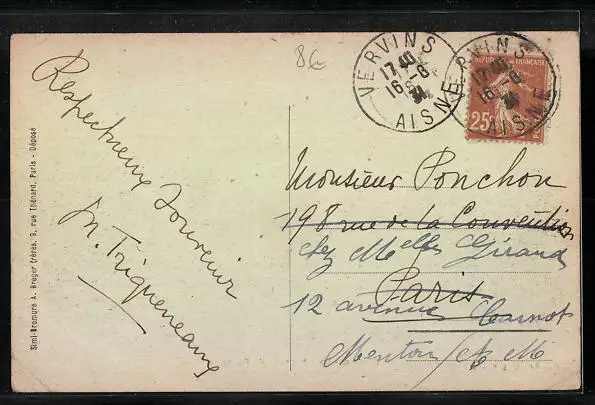 8€
VERVINS
17 40
16 - 8
31
AISNE
VERVINS
17 40
16 - 8
31
AISNE
REPUBLIQUE FRANÇAISE
25c
Respectueux Souvenir
M. Triqueneaux
Simi-Bromure A. Breger frères, 9, rue Thénard, Paris - Déposé
Monsieur Ponchon
198 rue de la Convention
chez Melles Giraud
Paris
12 avenue Carnot
Menton A. M